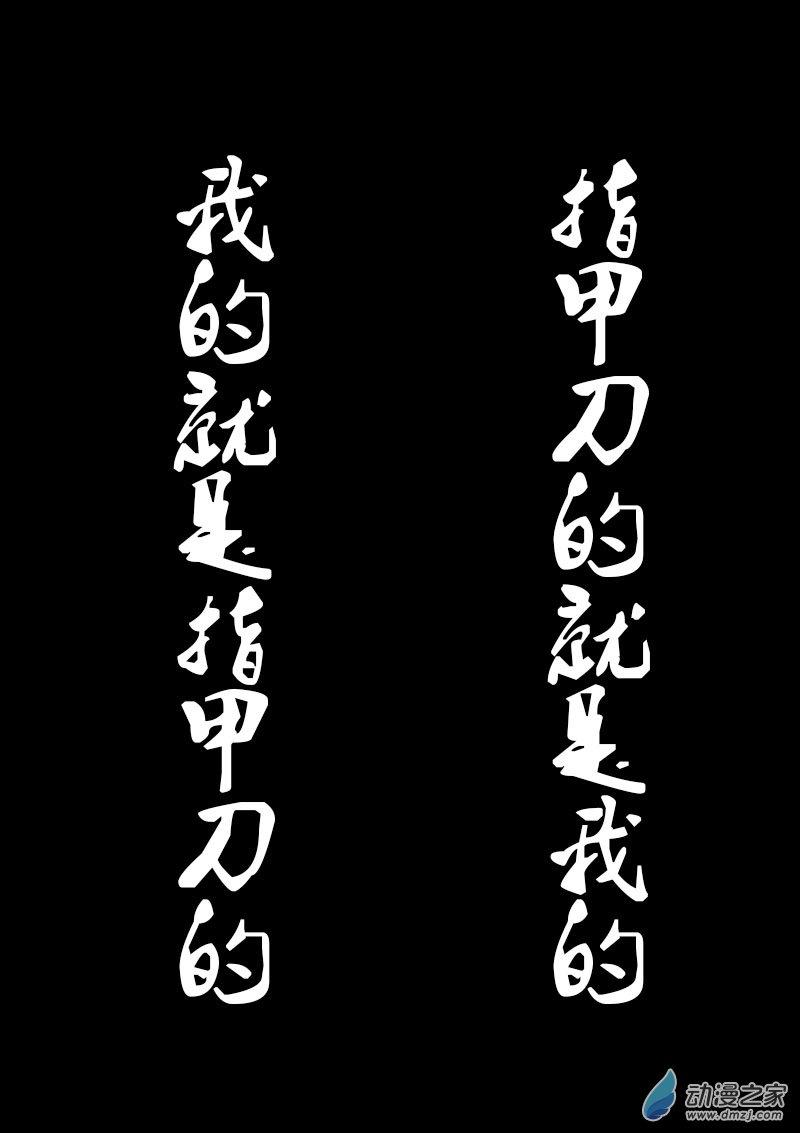 指甲刀的就是我的
我的就是指甲刀的
动漫之家
www.dmzj.com